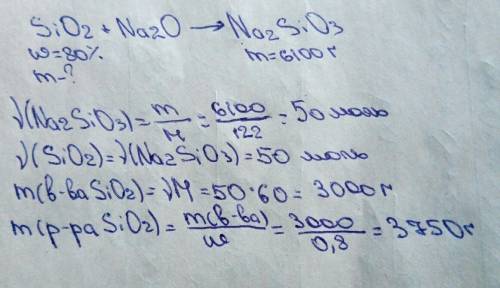 SiO2 + Na2O → Na2SiO3
w=80% m=6100г
m-?
ν(Na2SiO3)=m/M=6100/122=50 моль
ν(SiO2)=ν(Na2SiO3)=50 моль
m(в-ва SiO2)=νM=50·60=3000г
m(р-ра SiO2)=m(в-ва)/w=3000/0,8=3750г